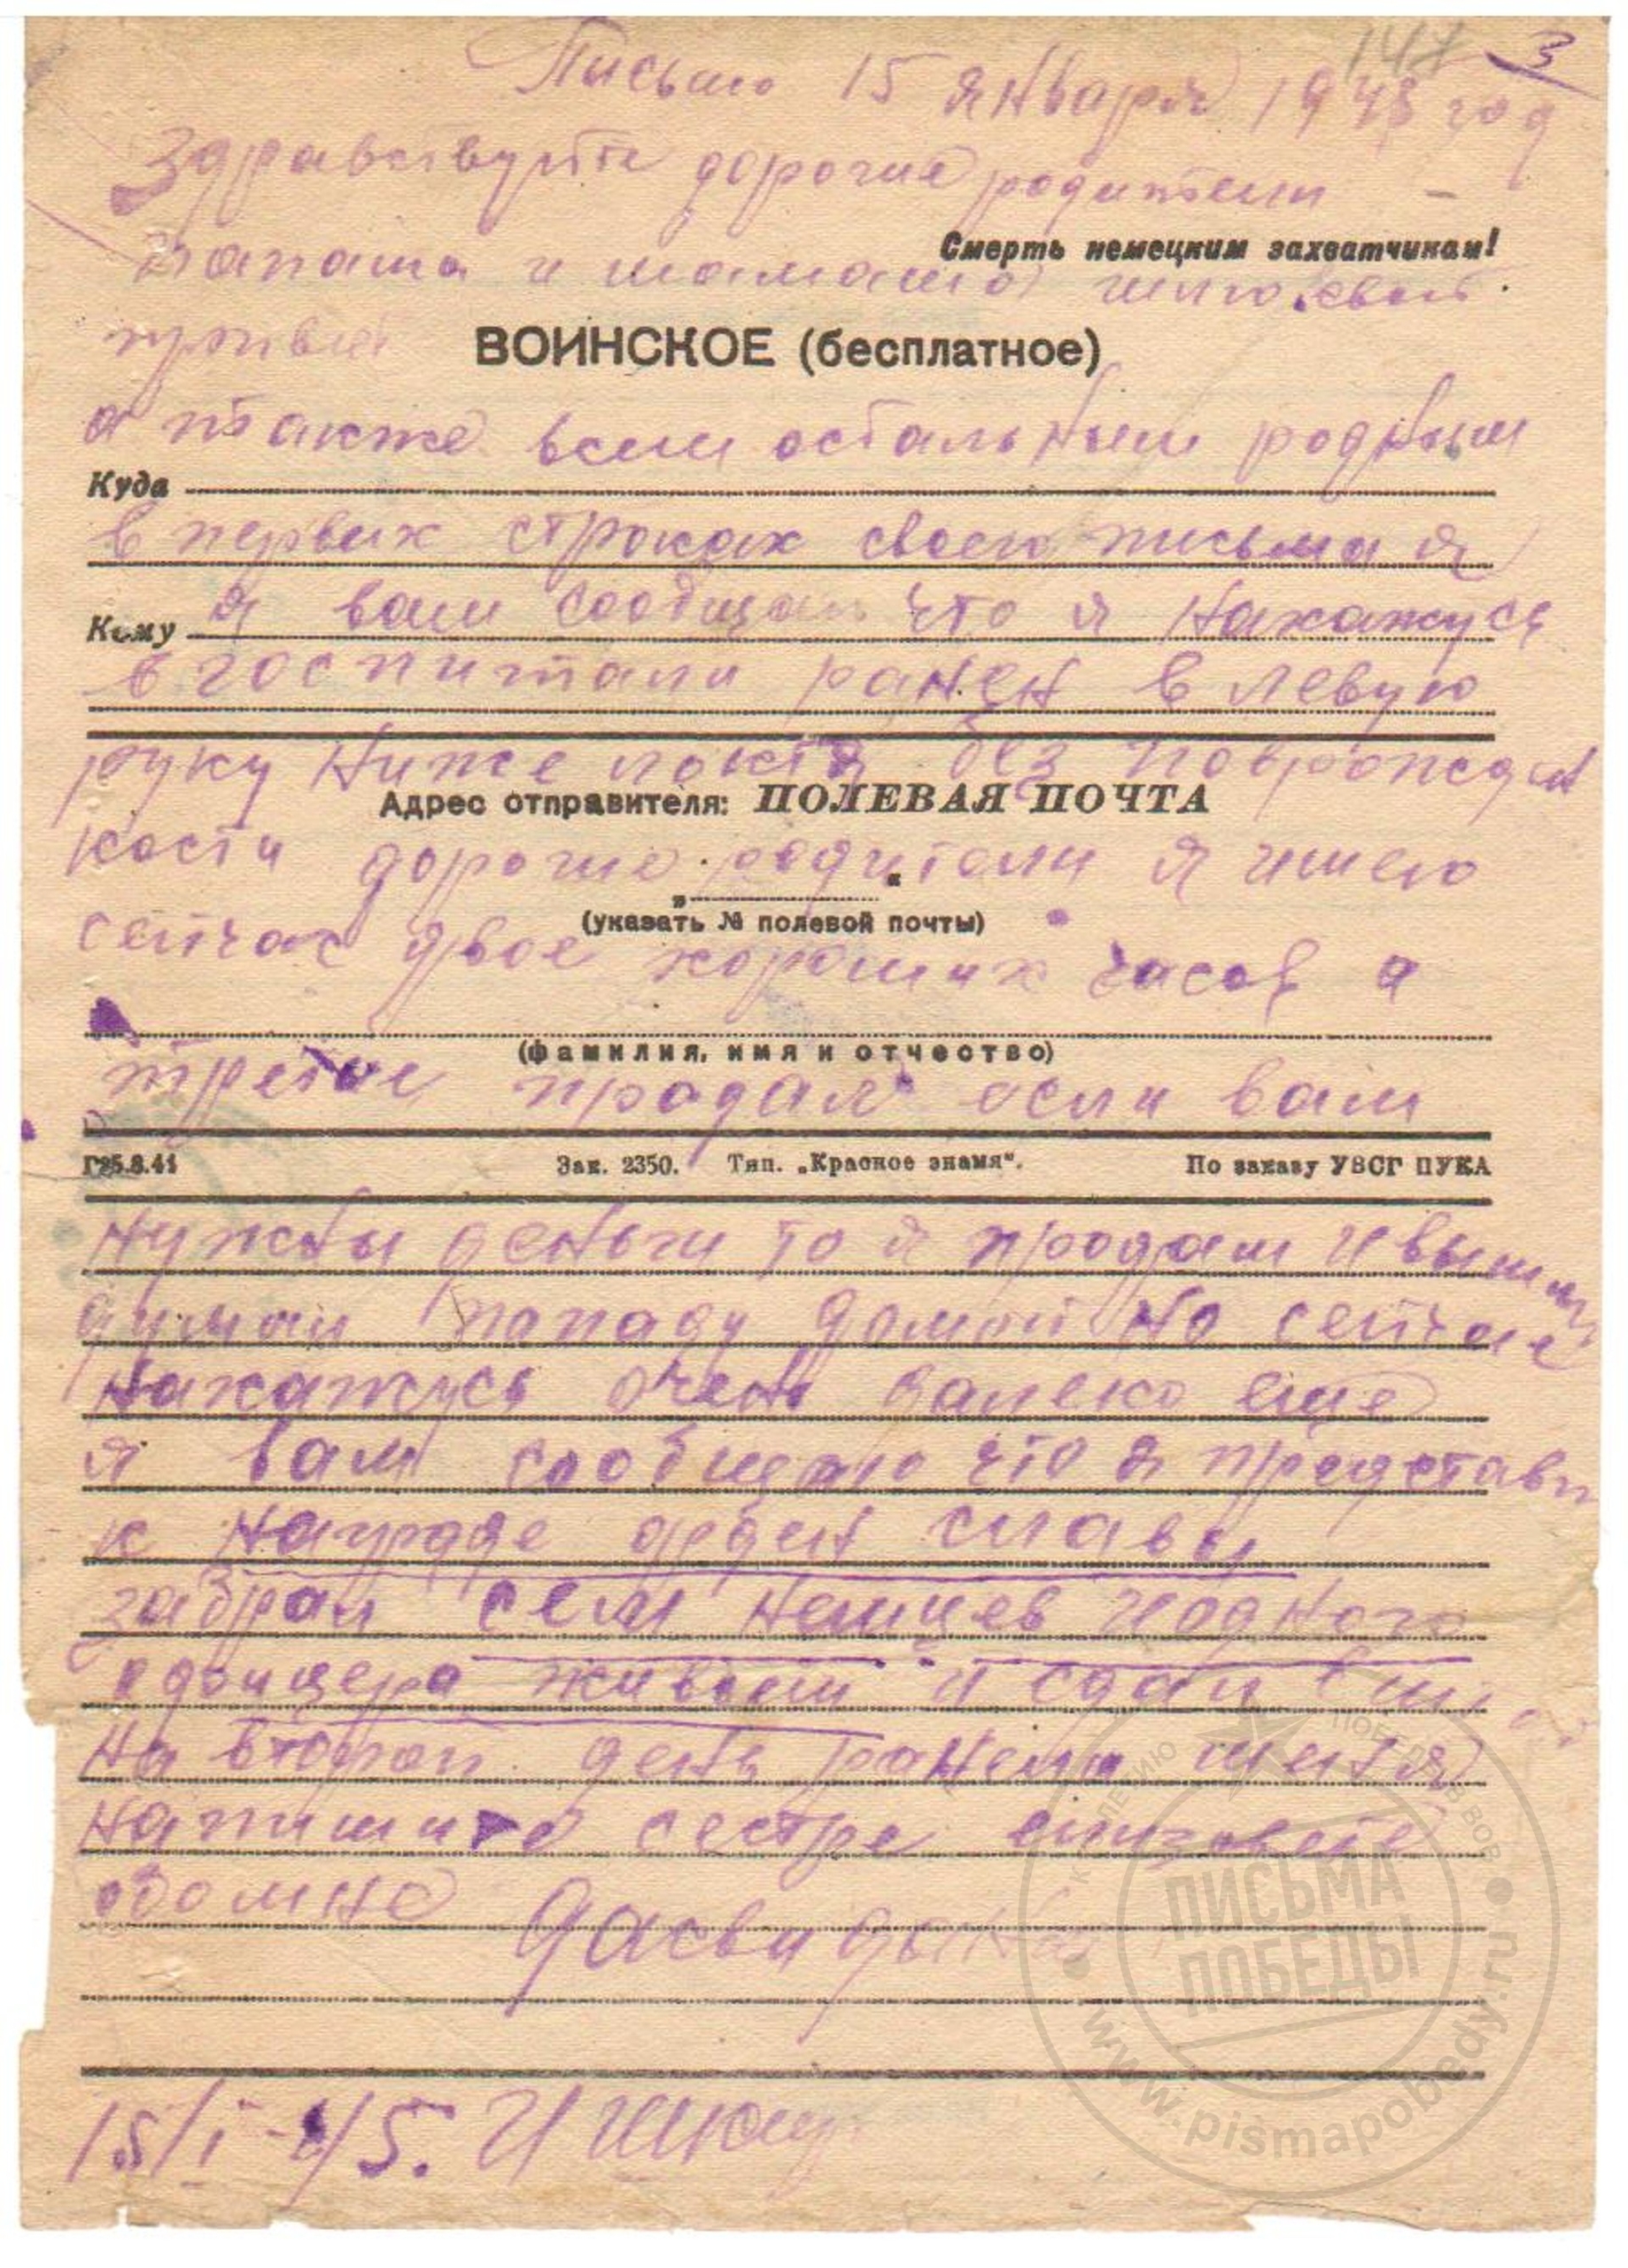 147 3
Письмо 15 января 1945 год
Здравствуйте дорогие родители -
Смерть немецким захватчикам!
папаша и мамаша шлю свой
привет
ВОИНСКОЕ (бесплатное)
а также всем остальным родным
Куда
в первых строках своего письма я
Кому
я вам сообщаю что я нахажусь
в госпитали ранен в левую
руку ниже локтя без
Адрес отправителя: ПОЛЕВАЯ ПОЧТА
кости дорогие родители я имею
„ “
(указать № полевой почты)
сейчас двое хороших часов а
(фамилия, имя и отчество)
третие продал если вам
Г25.8.41 Зак. 2350. Тип. „Красное знамя“. По заказу УВСГ ПУКА
нужны деньги то я продам и
думаю попаду домой но сейчас
нахажусь очень далеко еще
я вам сообщаю что я представл
к награде орден славы
забрал сем немцев и одного
офицера живьем и сдал в
на второй день ранело меня
напишите сестре елизавете
обо мне Дасвидания
15/I-45. И
К ЛЕТИЮ ПОБЕДЫ В ВОВ
ПИСЬМА
ПОБЕДЫ
www.pismapobedy.ru